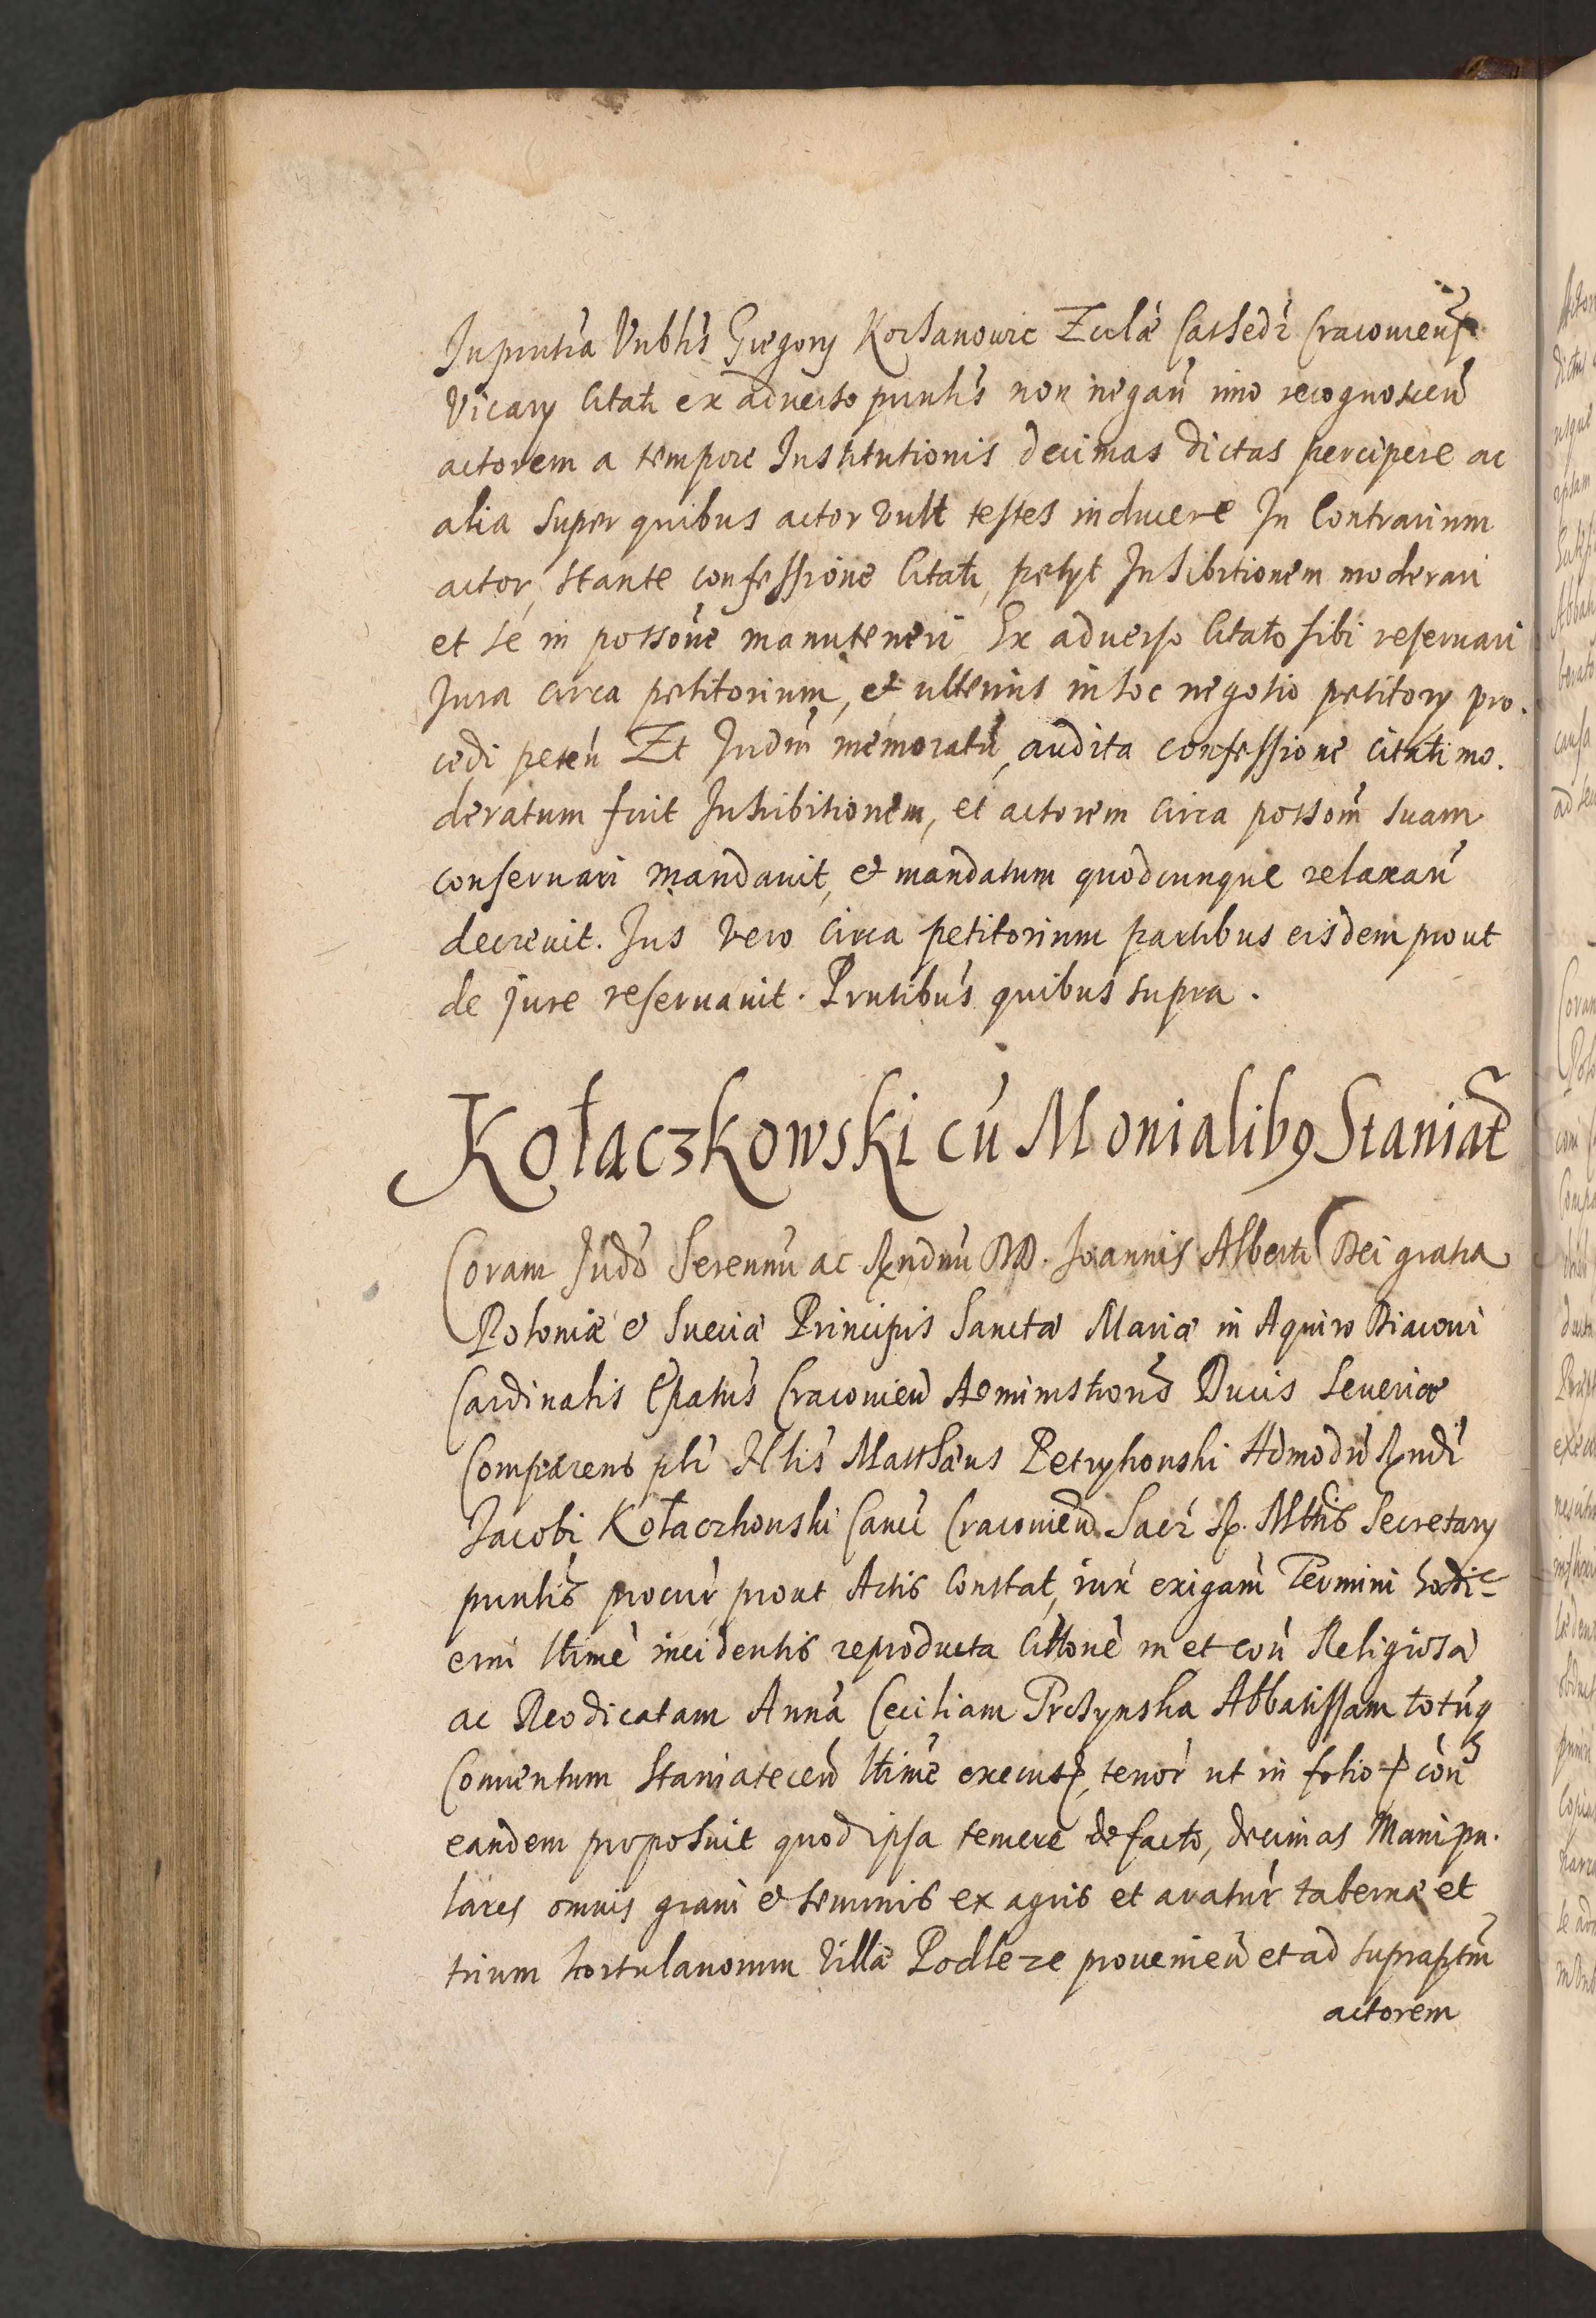 Inpñtia Vnblis Gregory Kochanowic Eccliæ Cathedr Cracovien
Vicary Citati ex adverso pñtis non negañ imo recognosceñ
actorem a tempore Institutionis decimas dictas percipere ac
alia super quibus actor vult testes inducere In Contrarium
actor, stante confessione Citati, petyt Inhibitionem moderari
et se in possoñe manuteneri Ex adverso Citato sibi reservari
Jura circa petitorium, et ulterius in hoc negotio petitory pro.
cedi peteñ Et Judm memoratũ, audita confessione Citati mo.
deratum fuit Inhibitionem, et actorem circa possom̃ suam
conservari mandavit, et mandatum quodcunque relaxañ
decrevit. Jus vero circa petitorium partibus eisdem prout
de jure reservavit. Pñtibus quibus supra.
Kołaczkowski cũ Monialibꝯ Staniat
Coram Judõ Serennũ ac Rndnũ DD. Joannis Alberti Dei gratia
Poloniæ et Sueciæ Principis Sanctæ Mariæ in Aquiro Diaconi
Cardinalis Epatus Cracovieñ Administrons Ducis Severiæ
Comparens plr Nblis Matthæus Petrykouski Admodũ Rndi
Jacobi Kołaczkouski Canci Cracovieñ Sacr R. Mttis Secretary
pñtis procur, prout Actis Constat, iux exigam Termini hodi-
erni lttime incidentis reproducta Cittone in et con Religiosã
ac Deodicatam Annã Ceciliam Trctynska Abbatissam totũqꝫ
Conventum Staniateceñ lttime execut, tenor ut in folio con
eandem proposuit quod ipsa temere de facto, decimas Manipu.
lares omnis grani et seminis ex agris et aratur tabernæ et
trium hortulanorum Villæ Podleze provenieñ et ad suprapttm
actorem